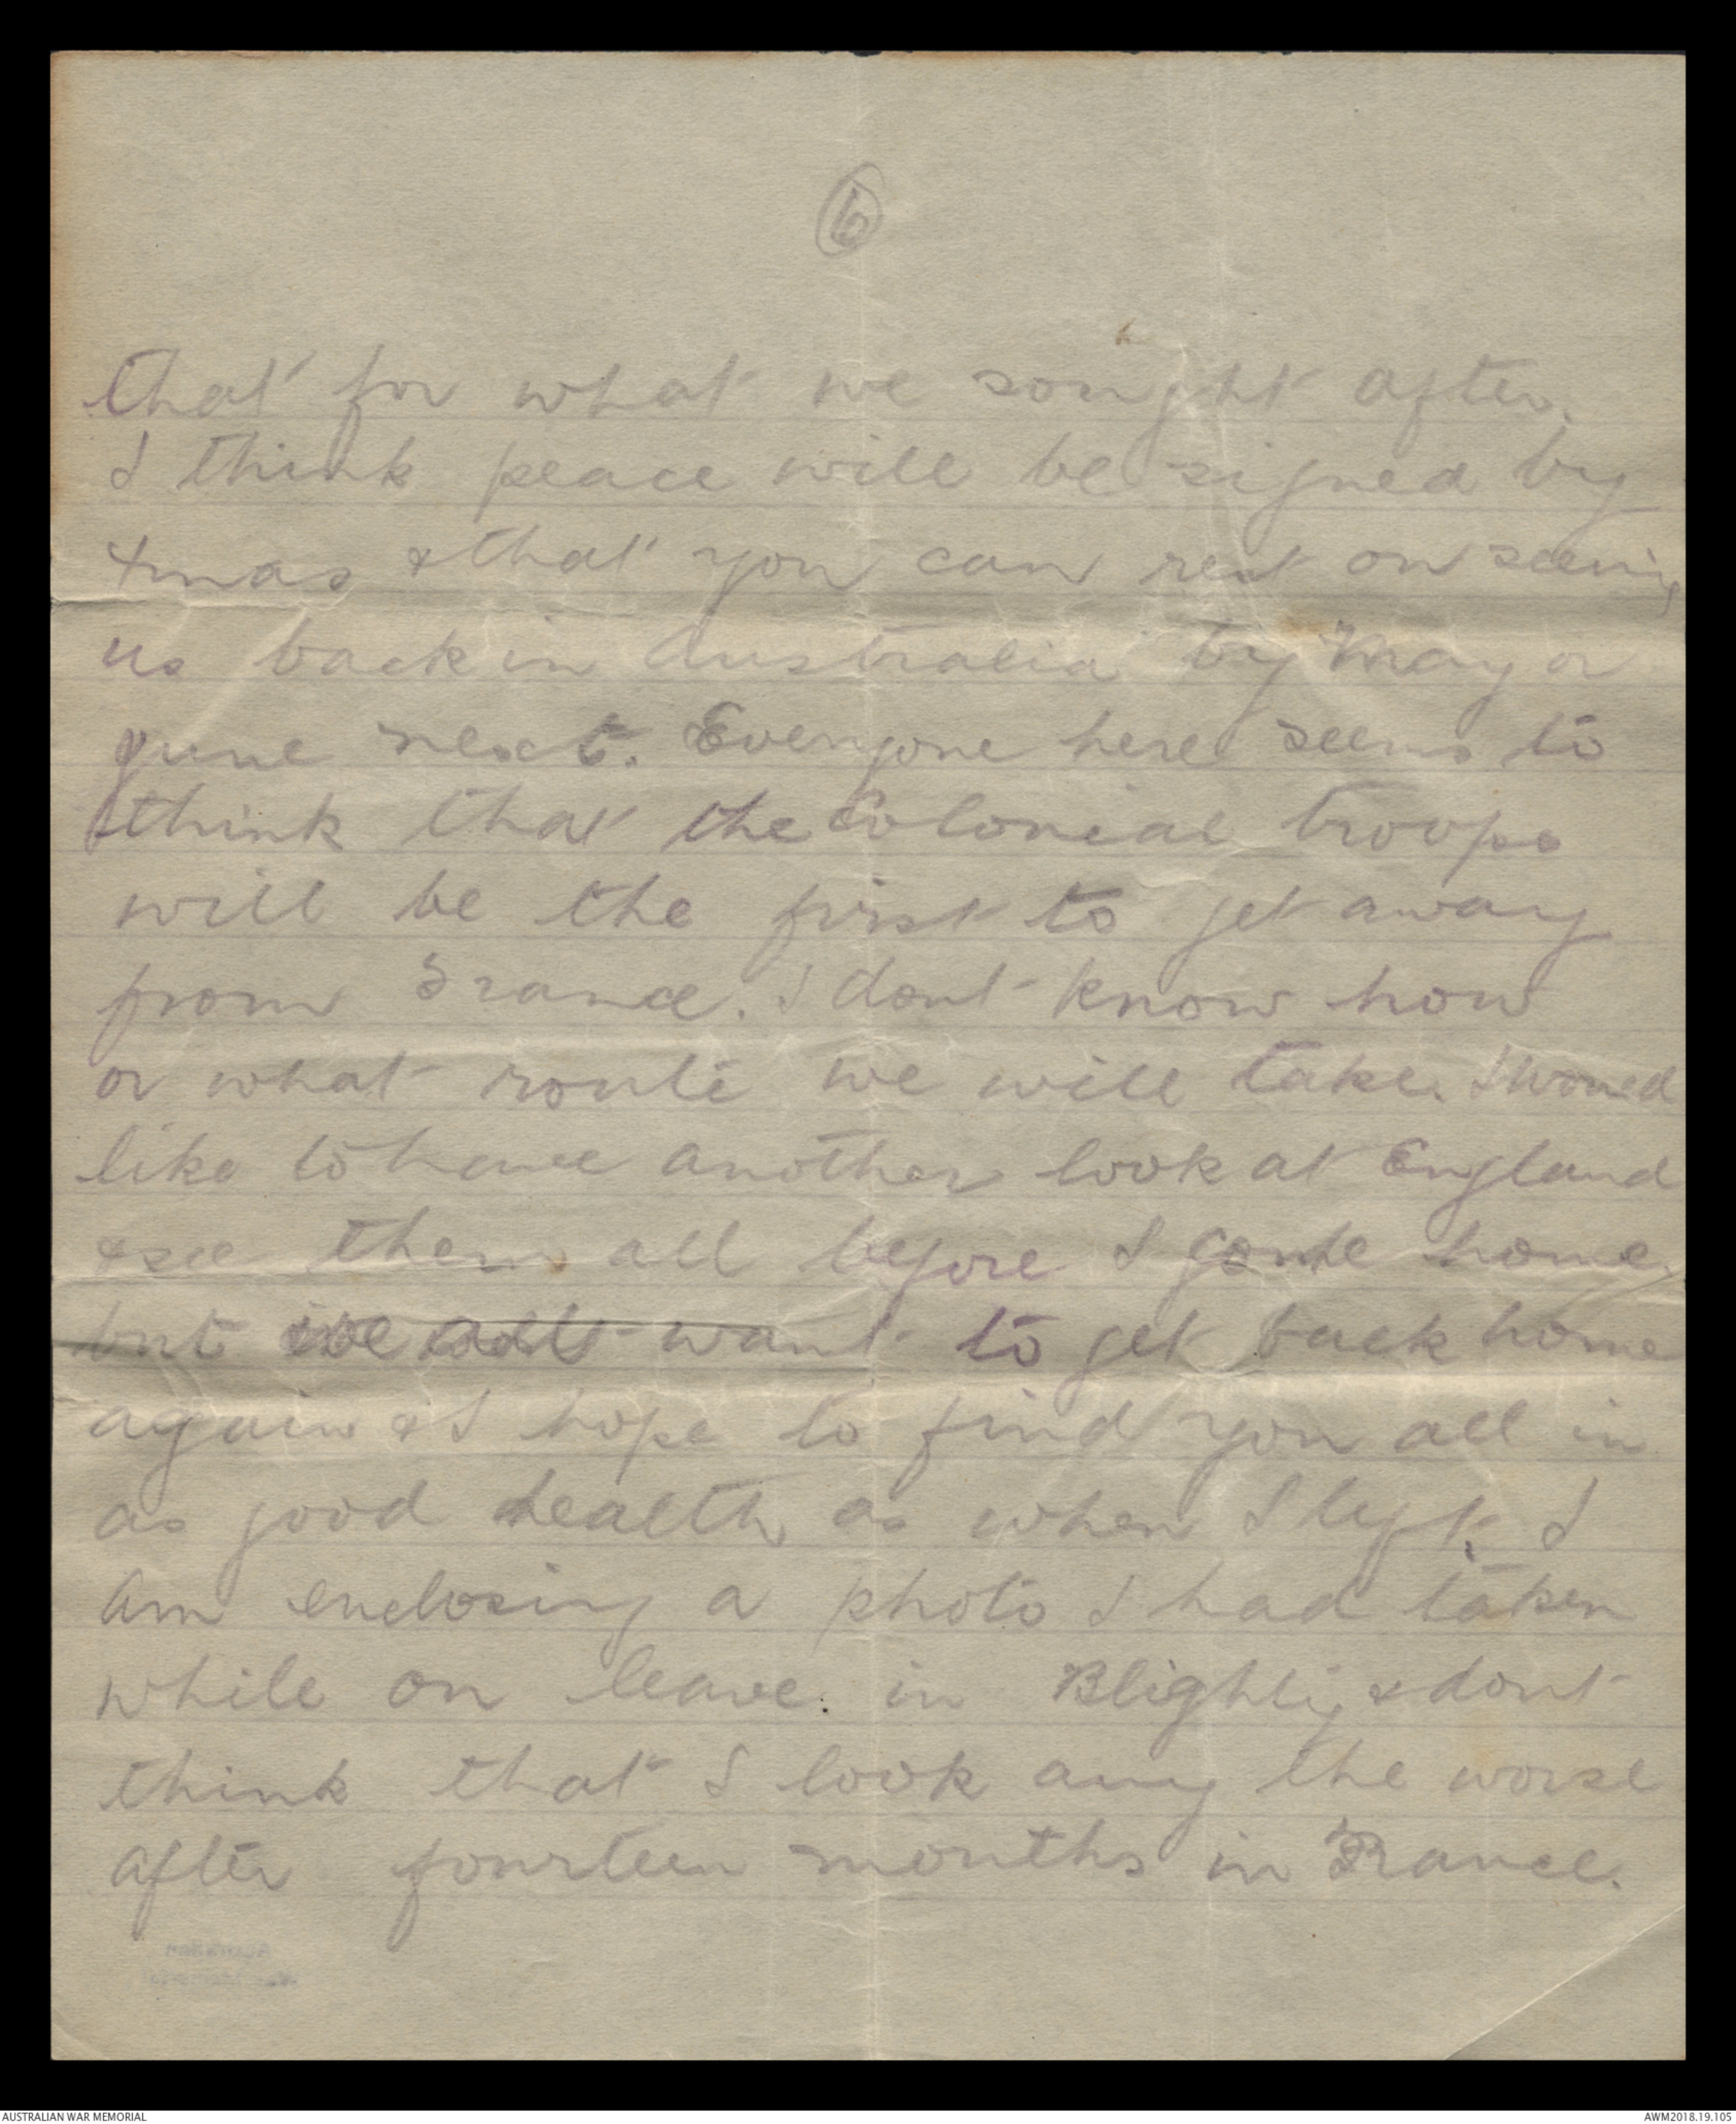 6
that for what we sought after.
I think peace will be signed by
Xmas & that you can rest on seeing
us back in Australia by May or
June next. Everyone here seems to
think that the Colonial troops
will be the first to get away
from France. I dont know how
or what route we will take. I would
like to have another look at England
& see them all before I come home.
but we all want to get back home
again & I hope to find you all in
as good health as when I left. I
am enclosing a photo I had taken
while on leave. in Blighty & dont
think that I look any the worse
after fourteen months in France.
AUSTRALIAN WAR MEMORIAL
AWM2018.19.105